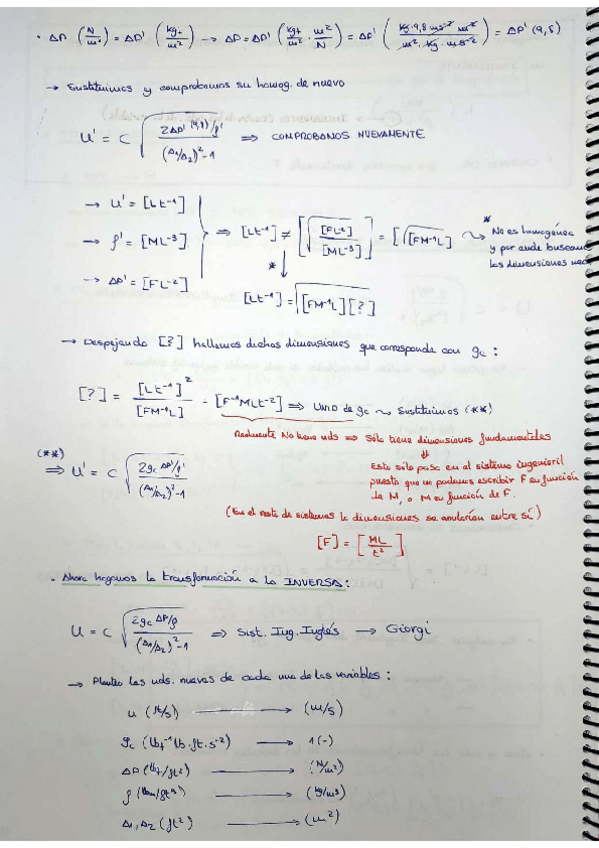 · ΔP (N/m²) = ΔP' (kgf/m²) → ΔP = ΔP' (kgf/m² · m²/N) = ΔP' (kg·9,8 m s⁻² m²/m²·kg·m s⁻²) = ΔP' (9,8)
→ Sustituimos y comprobamos su homog. de nuevo
U' = C √(2ΔP' (9,8)/ρ' / (A₁/A₂)²-1) ⇒ COMPROBAMOS NUEVAMENTE
→ U' = [Lt⁻¹]
→ ρ' = [ML⁻³] ⇒ [Lt⁻¹] ≠ [√([FL⁻²]/[ML⁻³])] = [√[FM⁻¹L]] ⤳ * No es homogénea
y por ende buscamos
las dimensiones
→ ΔP' = [FL⁻²]
* ↓
[Lt⁻¹] = √([FM⁻¹L][?])
→ Despejando [?] hallamos dichas dimensiones que corresponde con gc :
[?] = [Lt⁻¹]²/[FM⁻¹L] = [F⁻¹MLt⁻²] ⇒ UNID de gc ⤳ Sustituimos (**)
Realmente No tiene uds ⇒ Sólo tiene dimensiones fundamentales
⇓
Esto sólo pasa en el sistema ingenieril
puesto que no podemos escribir F en función
de M, o M en función de F.
(En el resto de sistemas la dimensiones se anularían entre sí)
[F] = [ML/t²]
(**)
⇒ U' = C √(2gc ΔP'/ρ' / (A₁/A₂)²-1)
· Ahora hagamos la transformación a la INVERSA:
U = C √(2gc ΔP/ρ / (A₁/A₂)²-1) ⇒ Sist. Ing. Inglés → Giorgi
→ Planteo las uds. nuevas de cada una de las variables :
u (ft/s) → (m/s)
gc (lbf⁻¹ lb·ft·s⁻²) → 1 (-)
ΔP (lbf/ft²) → (N/m²)
ρ (lbm/ft³) → (kg/m³)
A₁, A₂ (ft²) → (m²)